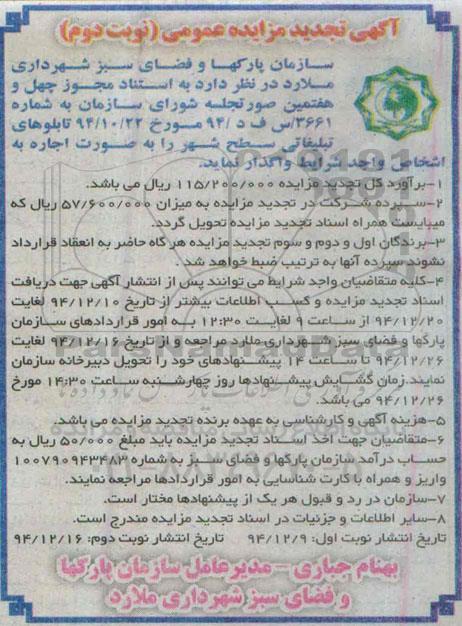 آگهی تجدید مزایده عمومی (نوبت دوم)
سازمان پارکها و فضای سبز شهرداری
ملارد در نظر دارد به استناد مجوز چهل و
هفتمین صورتجلسه شورای سازمان به شماره
۳۶۶۱/س ف د /۹۴ مورخ ۹۴/۱۰/۲۲ تابلوهای
تبلیغاتی سطح شهر را به صورت اجاره به
اشخاص واجد شرایط واگذار نماید.
۱-برآورد کل تجدید مزایده ۱۱۵/۲۰۰/۰۰۰ ریال می باشد.
۲-سپرده شرکت در تجدید مزایده به میزان ۵۷/۶۰۰/۰۰۰ ریال که
میبایست همراه اسناد تجدید مزایده تحویل گردد.
۳-برندگان اول و دوم و سوم تجدید مزایده هر گاه حاضر به انعقاد قرارداد
نشوند سپرده آنها به ترتیب ضبط خواهد شد .
۴-کلیه متقاضیان واجد شرایط می توانند پس از انتشار آگهی جهت دریافت
اسناد تجدید مزایده و کسب اطلاعات بیشتر از تاریخ ۹۴/۱۲/۱۰ لغایت
۹۴/۱۲/۲۰ از ساعت ۹ لغایت ۱۲:۳۰ به امور قراردادهای سازمان
پارکها و فضای سبز شهرداری ملارد مراجعه و از تاریخ ۹۴/۱۲/۱۶ لغایت
۹۴/۱۲/۲۶ تا ساعت ۱۴ پیشنهادهای خود را تحویل دبیرخانه سازمان
نمایند.زمان گشایش پیشنهادها روز چهارشنبه ساعت ۱۴:۳۰ مورخ
۹۴/۱۲/۲۶ می باشد.
۵-هزینه آگهی و کارشناسی به عهده برنده تجدید مزایده می باشد.
۶-متقاضیان جهت اخذ اسناد تجدید مزایده باید مبلغ ۵۰/۰۰۰ ریال به
حساب درآمد سازمان پارکها و فضای سبز به شماره ۱۰۰۷۹۰۹۴۳۴۸۳
واریز و همراه با کارت شناسایی به امور قراردادها مراجعه نمایند.
۷-سازمان در رد و قبول هر یک از پیشنهادها مختار است.
۸-سایر اطلاعات و جزئیات در اسناد تجدید مزایده مندرج است.
تاریخ انتشار نوبت اول: ۹۴/۱۲/۹ تاریخ انتشار نوبت دوم: ۹۴/۱۲/۱۶
بهنام جباری - مدیرعامل سازمان پارکها
و فضای سبز شهرداری ملارد